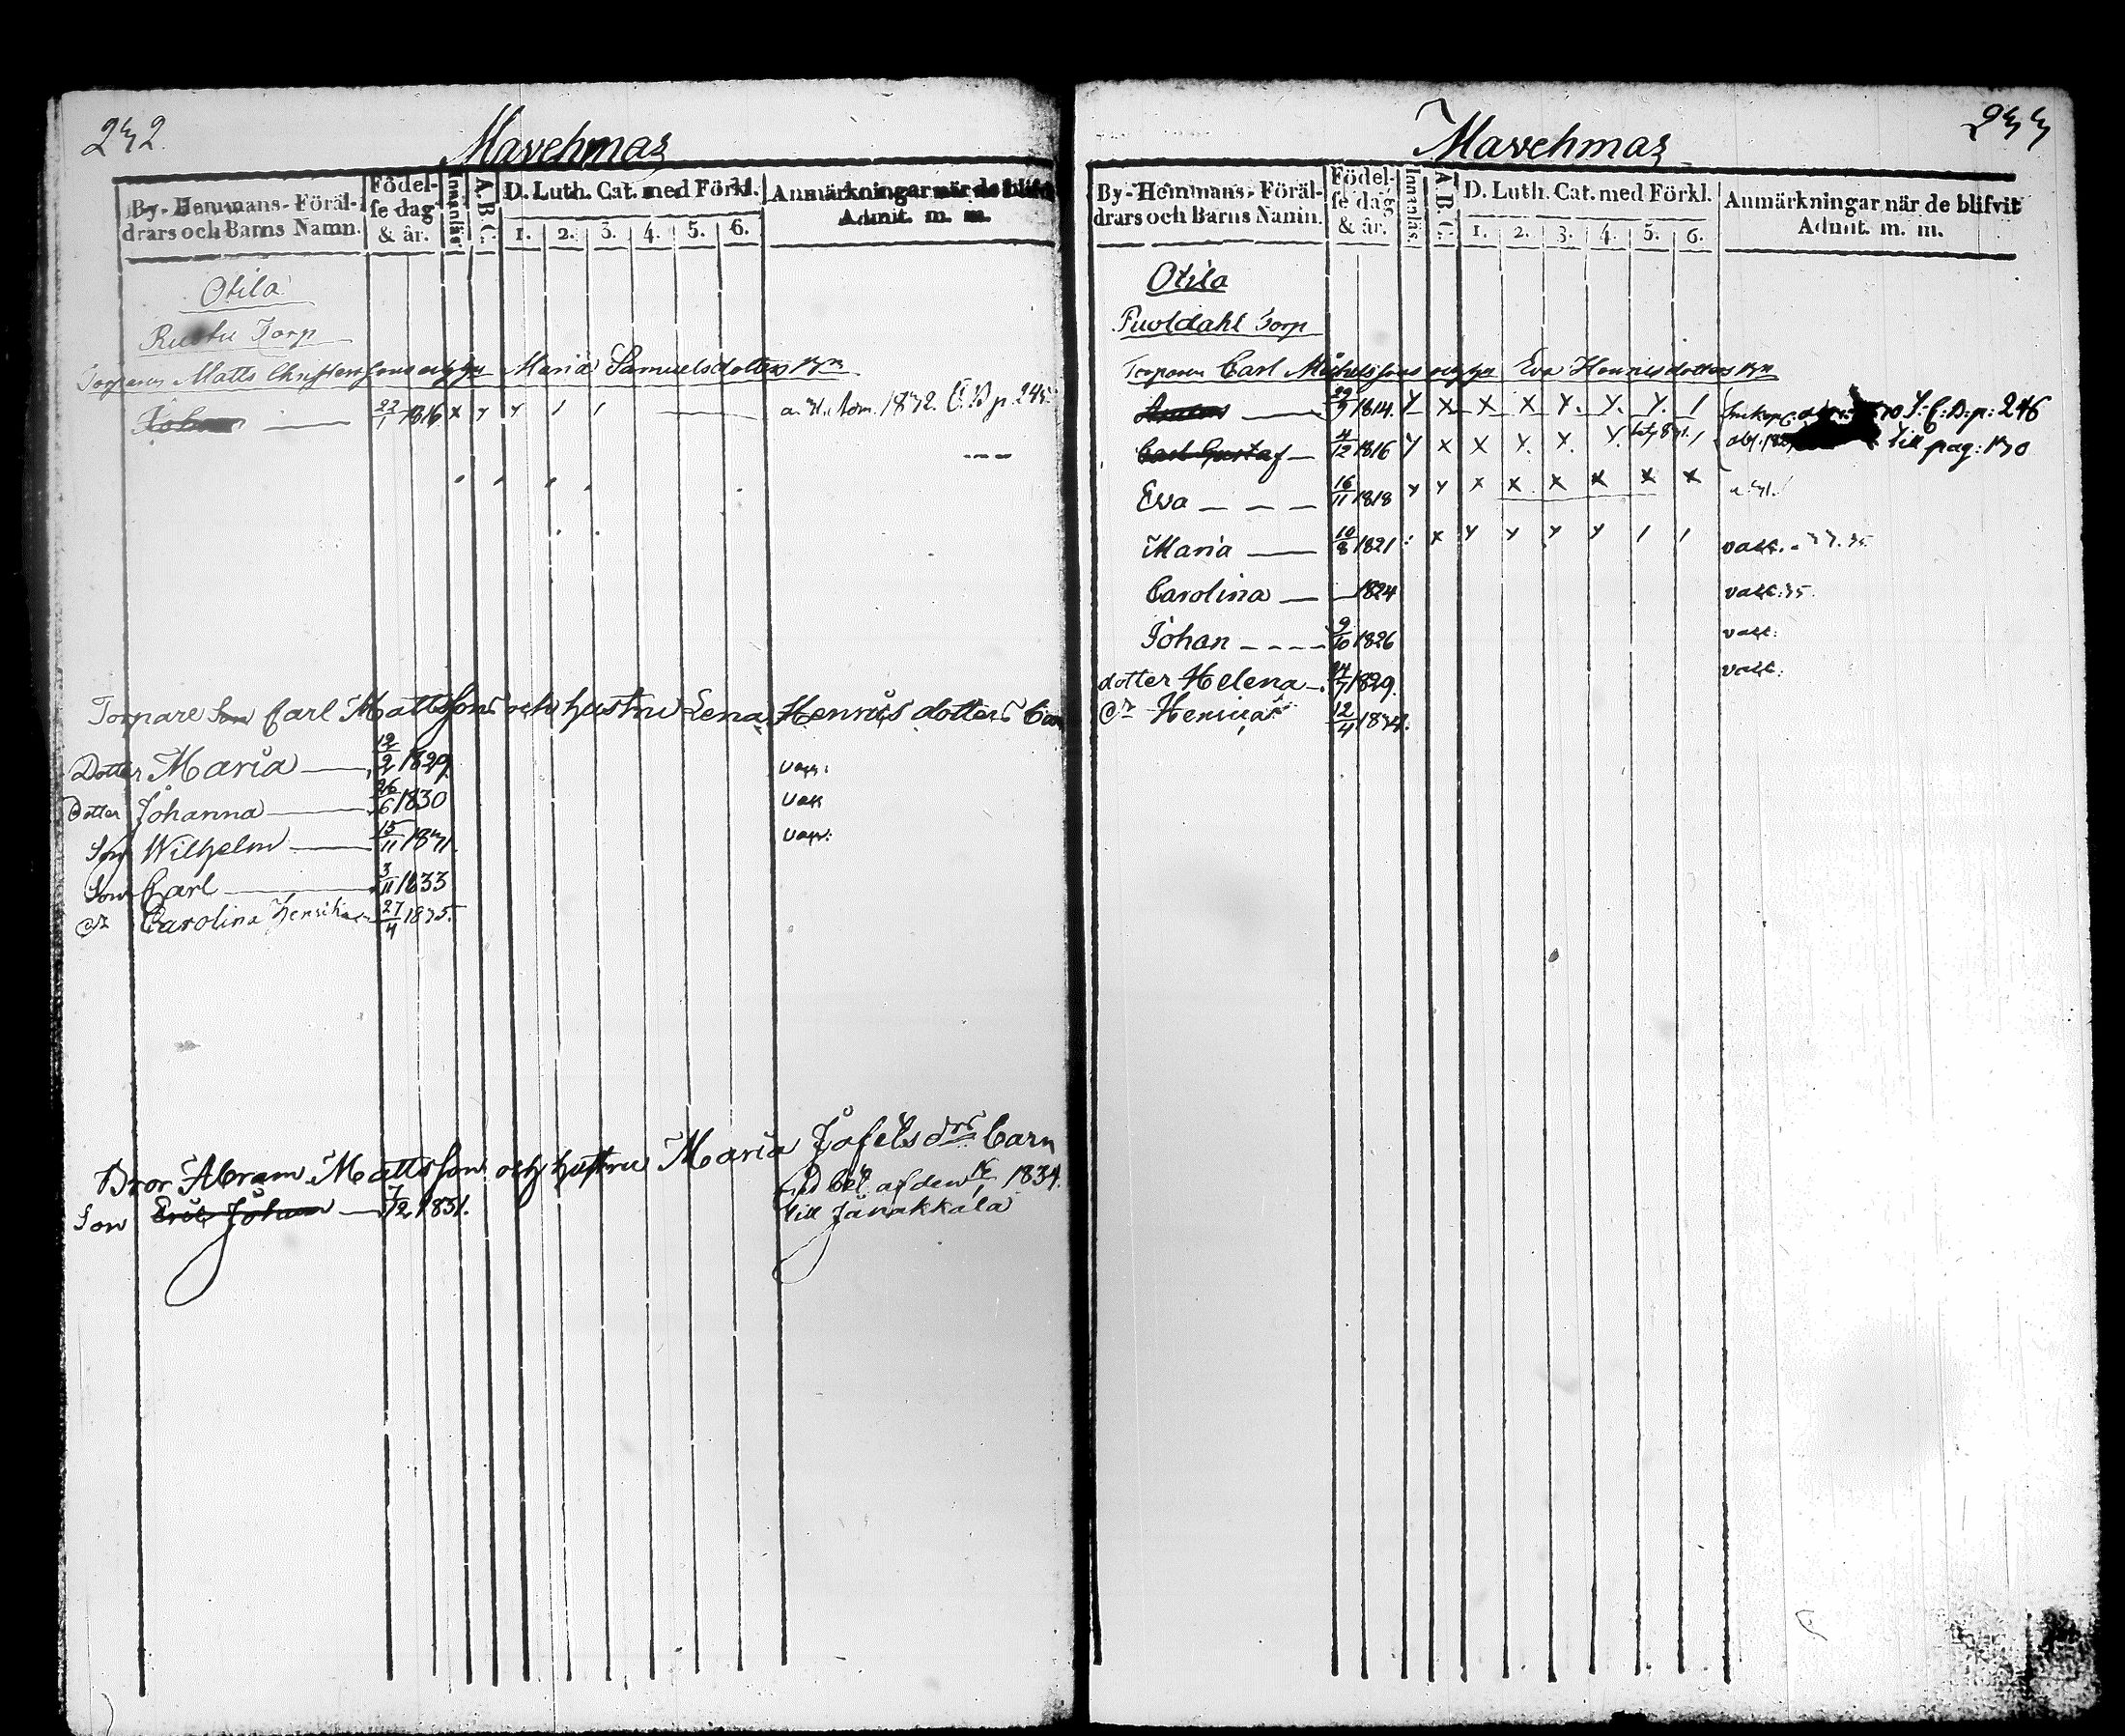 232.
Mavehmaz
By-Hemmans-Föräl-
drars och Barns Namn.
Födel-
se dag
& år.
Innanläs.
A.B.C.
D. Luth. Cat. med Förkl.
1. 2. 3. 4. 5. 6.
Anmärkningar när de blifvit
Admit. m. m.
Otila
Rustu Torp
Torparen Matts Christerssons och hu Maria Samuelsdotters Brn
Johan 22/1 1816 x y y / / 1832. C. B p. 245
Torpare Son Carl Mattssons och hustru Lena Henricsdotters Barn
Dotter Maria 12/2 1829
Dotter Johanna 26/6 1830
Son Wilhelm 15/11 1831.
Son Carl 3/11 1833
Dr Carolina Henrika 27/4 1835.
Bror Abram Mattsson och hustru Maria Josefsdrs barn
Son Eric Johan 7/2 1831. med bet. af den 1834.
till Janakkala
233
Mavehmaz
By-Hemmans-Föräl-
drars och Barns Namn.
Födel-
se dag
& år.
Innanläs.
A.B.C.
D. Luth. Cat. med Förkl.
1. 2. 3. 4. 5. 6.
Anmärkningar när de blifvit
Admit. m. m.
Otila
Puoldahl Torp
Torparen Carl Michelssons och hu Eva Henricsdotters Brn
1814. y x x x y. y. y. / C: B: p: 246
Carl Gustaf 4/12 1816 y x x y. x. y. / till pag: 130
Eva 16/11 1818 y y x x x x x x
Maria 10/8 1821 x y y y y / / vacc. 35
Carolina 1824 vacc: 35.
Johan 9/10 1826 vacc:
dotter Helena 24/7 1829. vacc:
Dr Henrica 12/4 1834.